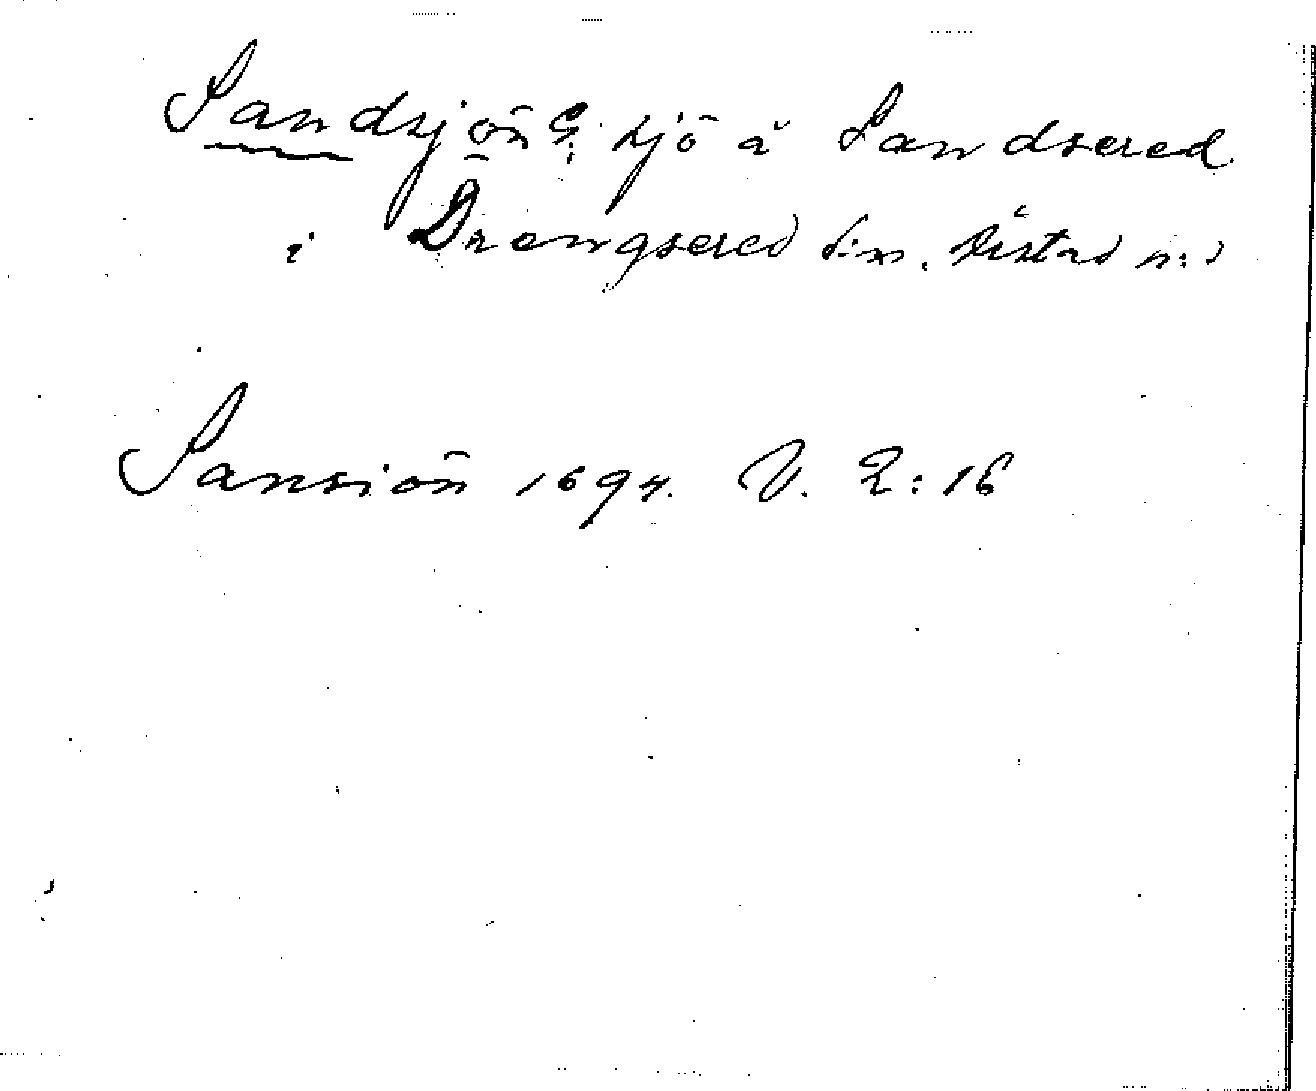 Sandsjön G; sjö å Sandsered
i Drengsered s:n. Årstad h:d
Sansiön 1694. V. 2:16